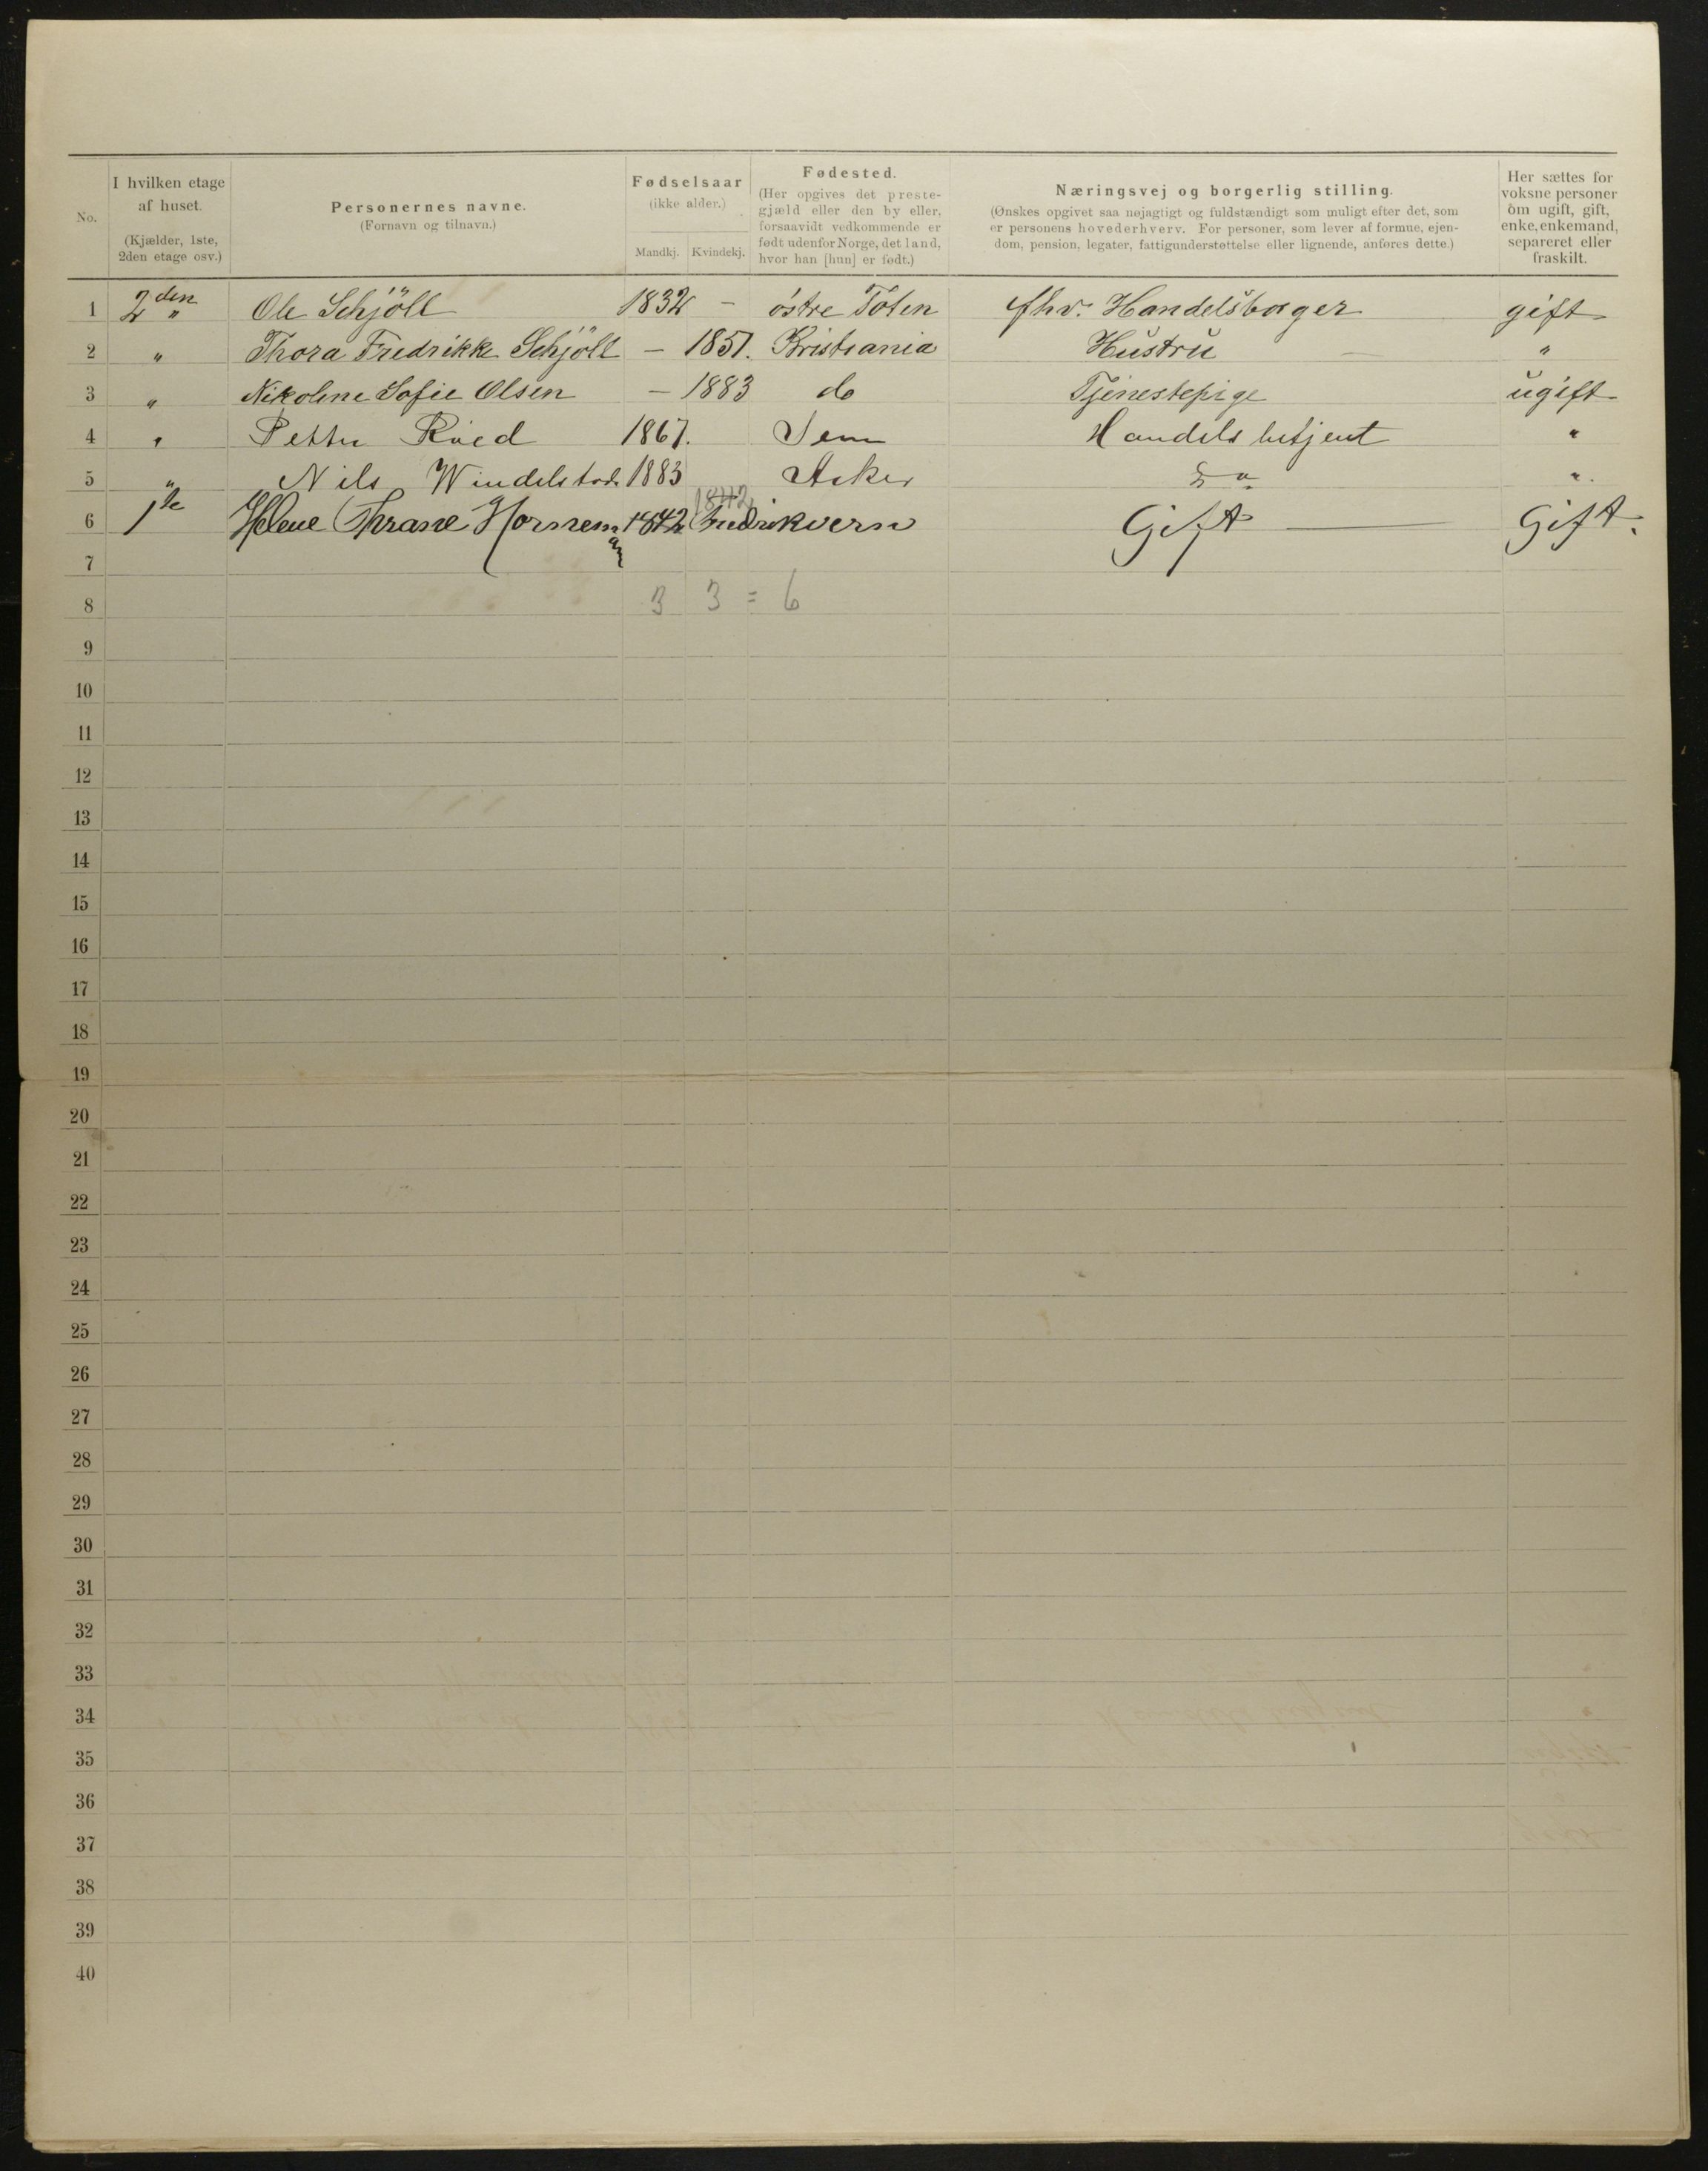 No.
I hvilken etage af huset. (Kjælder, 1ste, 2den etage osv.)
Personernes navne. (Fornavn og tilnavn.)
Fødselsaar (ikke alder.) Mandkj. Kvindekj.
Fødested. (Her opgives det prestegjæld eller den by eller, forsaavidt vedkommende er født udenfor Norge, det land, hvor han [hun] er født.)
Næringsvej og borgerlig stilling. (Ønskes opgivet saa nøjagtigt og fuldstændigt som muligt efter det, som er personens hovederhverv. For personer, som lever af formue, ejendom, pension, legater, fattigunderstøttelse eller lignende, anføres dette.)
Her sættes for voksne personer om ugift, gift, enke, enkemand, separeret eller fraskilt.
1 2den " Ole Schjöll 1832 – östre Toten fhv. Handelsborger gift
2 " Thora Fredrikke Schjöll – 1851. Kristiania Hustru "
3 " Nikoline Sofie Olsen – 1883 do Tjenestepige ugift
4 " Petter Röed 1867. Sem Handelsbetjent "
5 " Nils 1883 Asker Do "
6 1ste Helene Thrane Horneman 1842 1842 Fredriksvern Gift Gift.
7
8 3 3 = 6
9
10
11
12
13
14
15
16
17
18
19
20
21
22
23
24
25
26
27
28
29
30
31
32
33
34
35
36
37
38
39
40